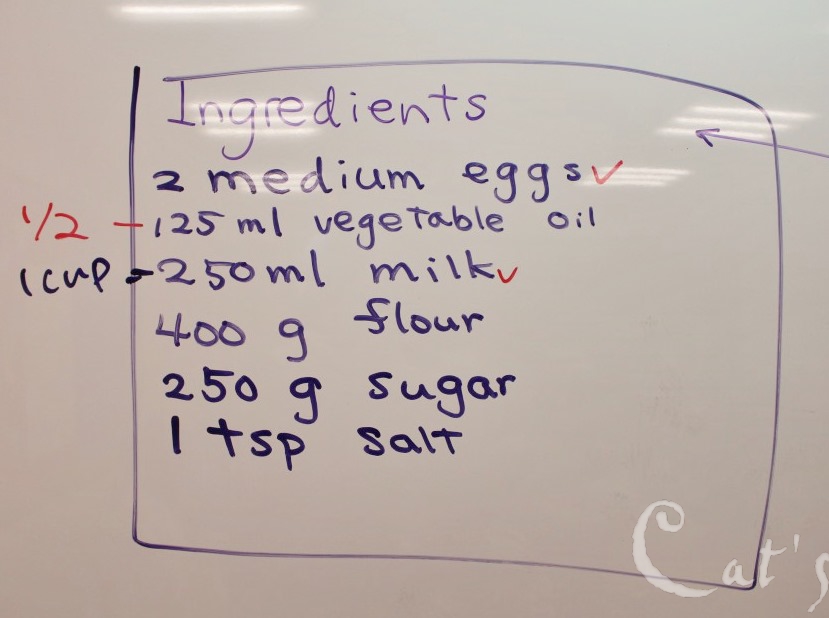 Ingredients
2 medium eggs✓
1/2 - 125 ml vegetable oil
1 cup - 250 ml milk✓
400 g flour
250 g sugar
1 tsp salt
Cat's